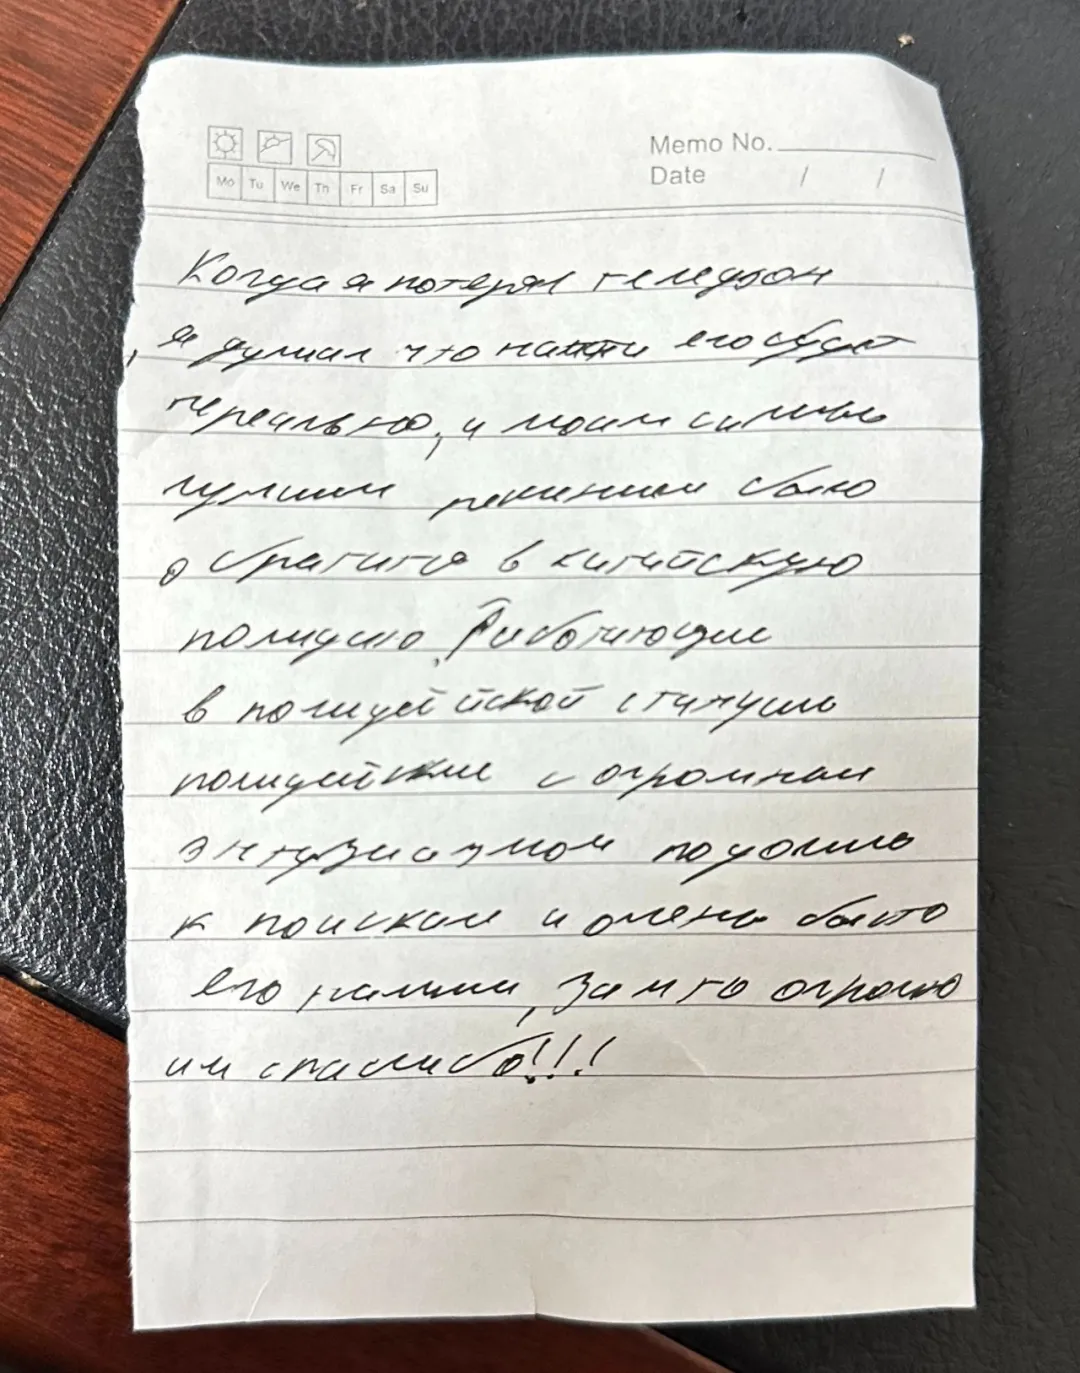 Memo No.
Mo Tu We Th Fr Sa Su
Date / /
Когда я потерял телефон
, я думал что найти его будет
нереально, и моим самым
лучшим решением было
обратится в китайскую
полицию, Работающие
в полицейской станции
полицейские с огромным
энтузиазмом подошли
к поискам и очень быстро
его нашли, за что огромное
им спасибо!!!